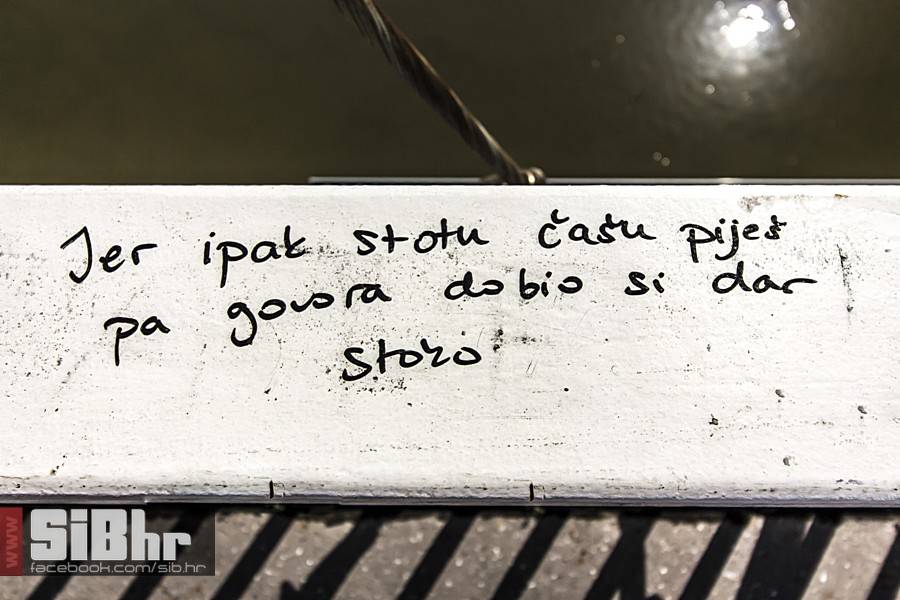 Jer ipak stotu čašu piješ
pa govora dobio si dar
stoko
www SiBhr
facebook.com/sib.hr